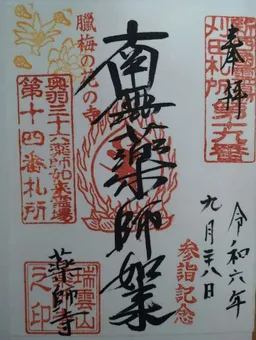 奉拝
刈田札所第六番
令和六年
九月二十八日
参詣記念
南無薬師如来
臘梅の花の寺
奥羽三十六薬師如来霊場
第十四番札所
薬師寺
瑞雲山
之印